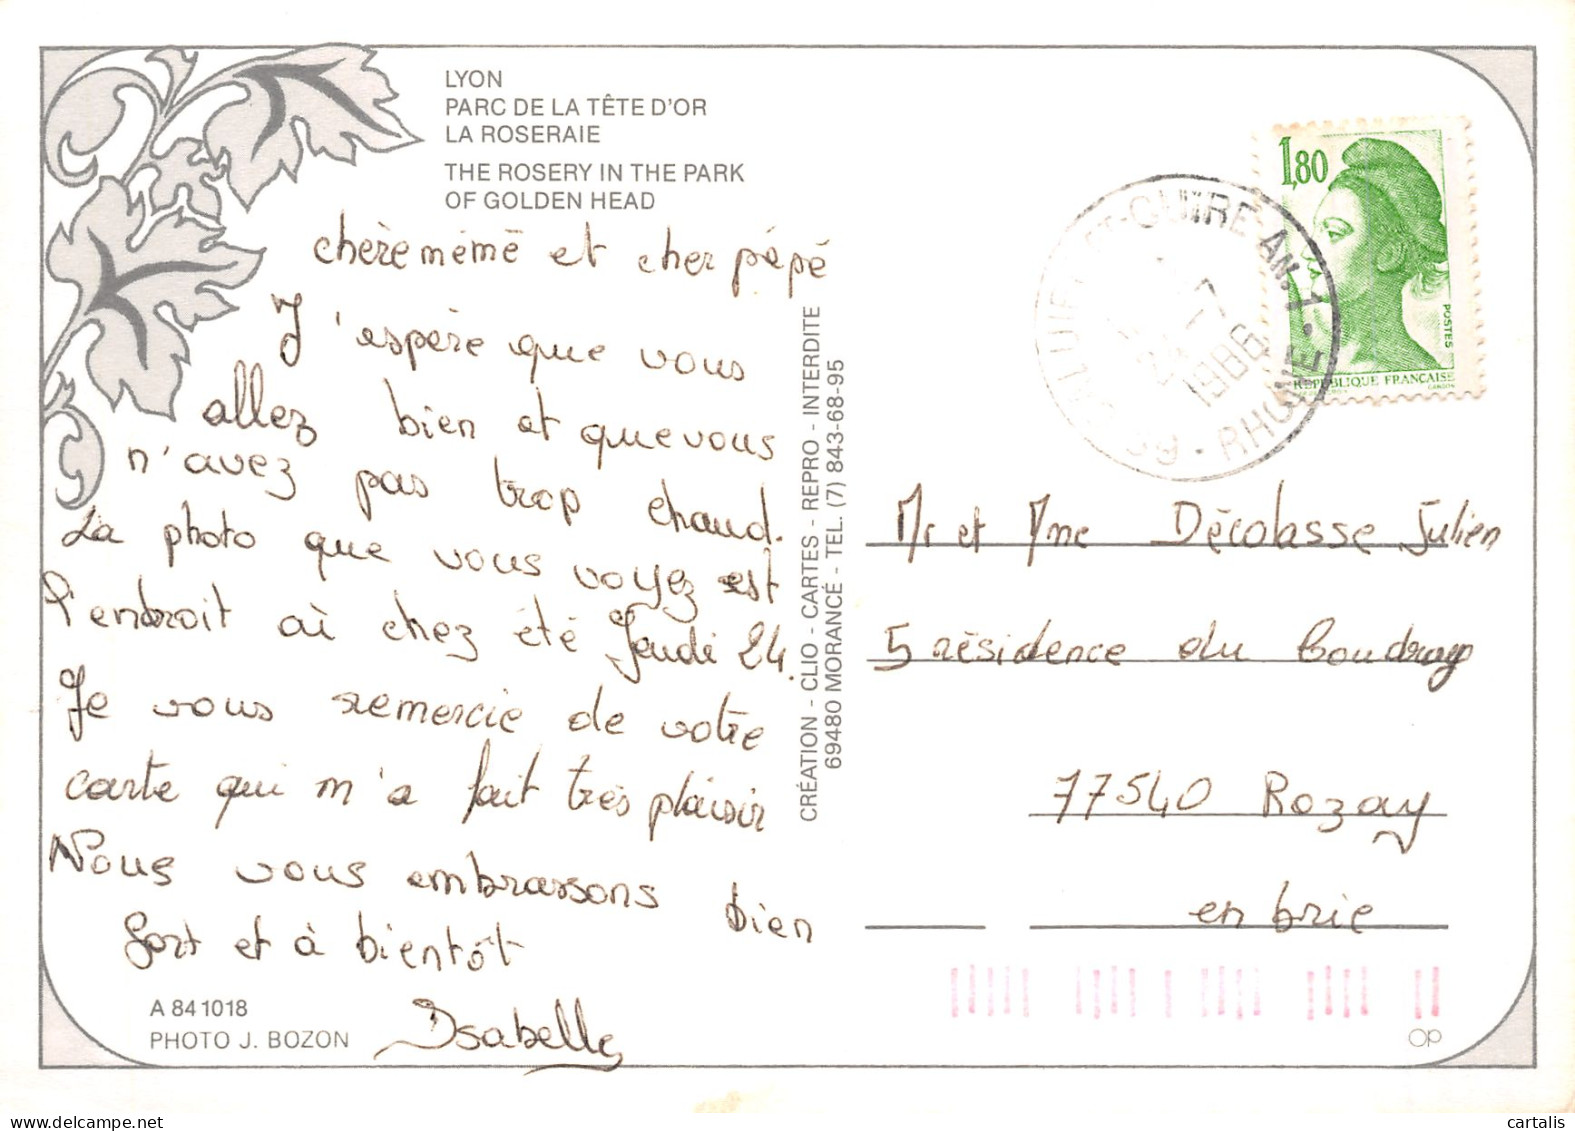 LYON
PARC DE LA TÊTE D'OR
LA ROSERAIE
THE ROSERY IN THE PARK
OF GOLDEN HEAD
chère mémé et cher pépé
J'espère que vous
allez bien et que vous
n'avez pas trop chaud.
La photo que vous voyez est
l'endroit où chez été Jeudi 24.
Je vous remercie de votre
carte qui m'a fait très plaisir
Nous vous embrassons bien
fort et à bientôt
Isabelle
A 84 1018
PHOTO J. BOZON
CRÉATION - CLIO - CARTES - REPRO - INTERDITE
69480 MORANCÉ - TEL. (7) 843-68-95
1,80
POSTES
REPUBLIQUE FRANÇAISE
CALUIRE-ET-CUIRE-AN.1.
7
1986
69 - RHONE
Mr et Mme Décolasse Julien
5 résidence du Coudray
77540 Rozay
en brie
OP
cartalis